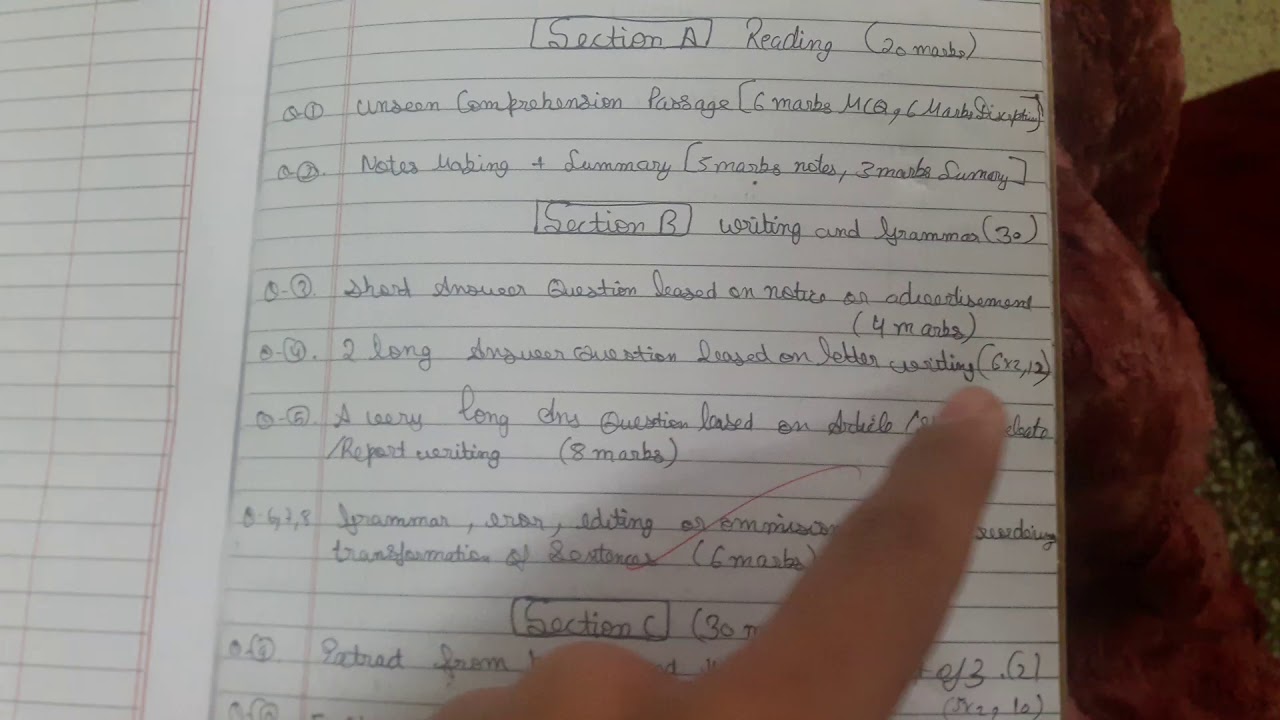 Section A Reading (20 marks)
Q① Unseen Comprehension Passage [6 marks MCQ, 6 Marks Discription]
Q②. Notes Making + Summary [5 marks notes, 3 marks Sumary]
Section B writing and Grammar (30)
Q-③. Short Answer Question based on notice or advertisement
(4 marks)
Q-④. 2 long Answer Question based on letter writing (6x2, 12)
Q-⑤. A very long Ans Question based on Article
/Report writing (8 marks)
Q-6,7,8 Grammar, eror, editing or ommission
transformation of Sentences (6 marks)
Section C (30
Extract from of 3 .(2)
(5x2, 10)